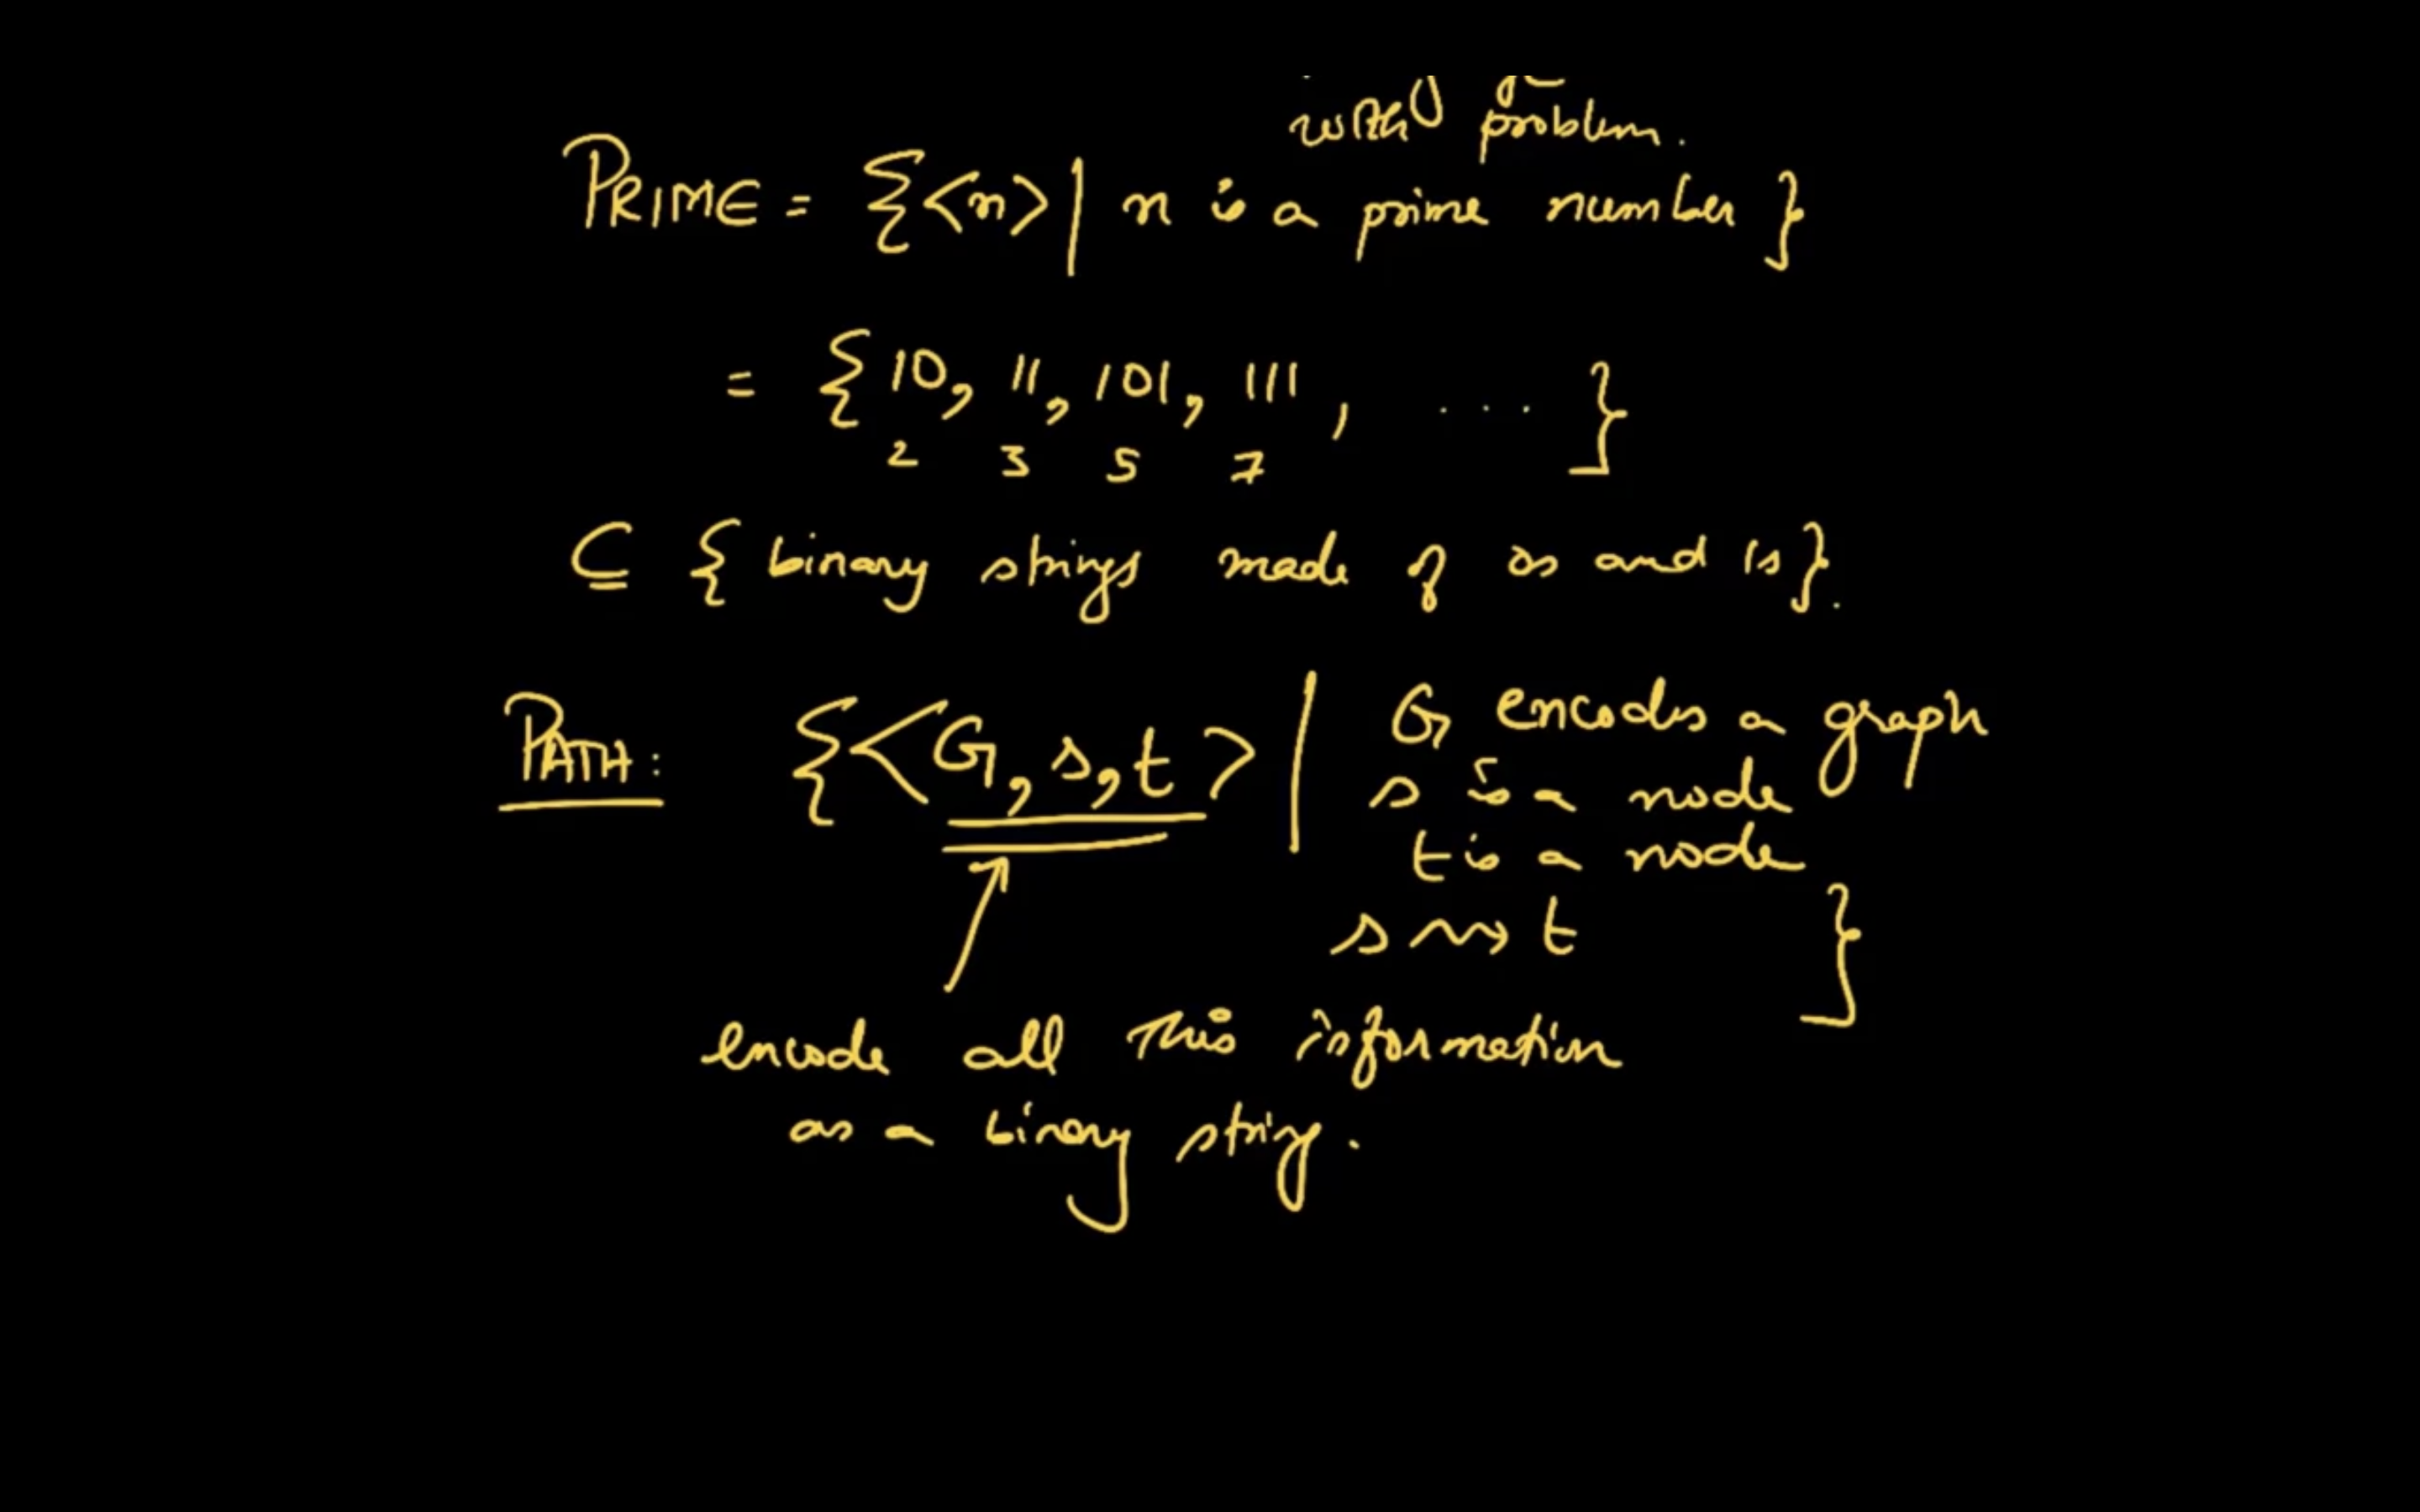 with problem.
PRIME = {<n> | n is a prime number}
= {10, 11, 101, 111, ... }
2 3 5 7
⊆ {binary strings made of 0s and 1s}.
PATH: {<G, s, t> | G encodes a graph
s is a node
t is a node
s ⇝ t }
encode all this information
as a binary string.